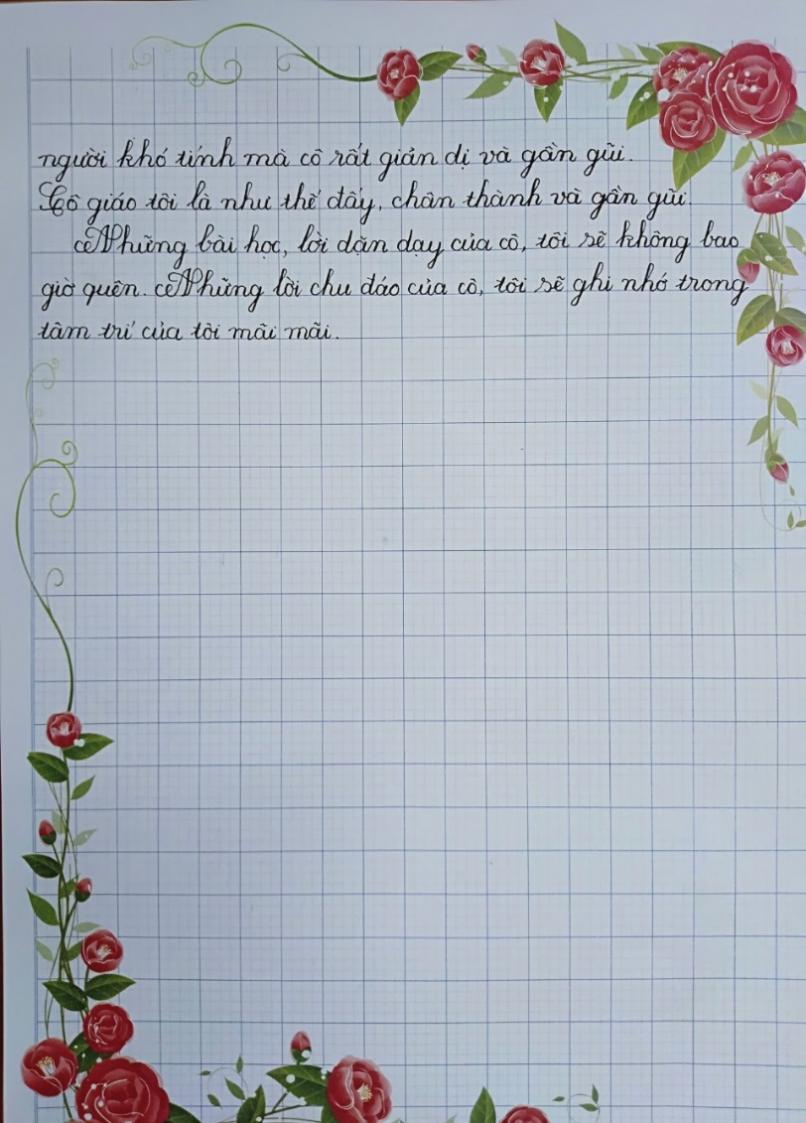 người khó tính mà cô rất giản dị và gần gũi.
Cô giáo tôi là như thế đấy, chân thành và gần gũi.
Những bài học, lời dặn dạy của cô, tôi sẽ không bao
giờ quên. Những lời chu đáo của cô, tôi sẽ ghi nhớ trong
tâm trí của tôi mãi mãi.